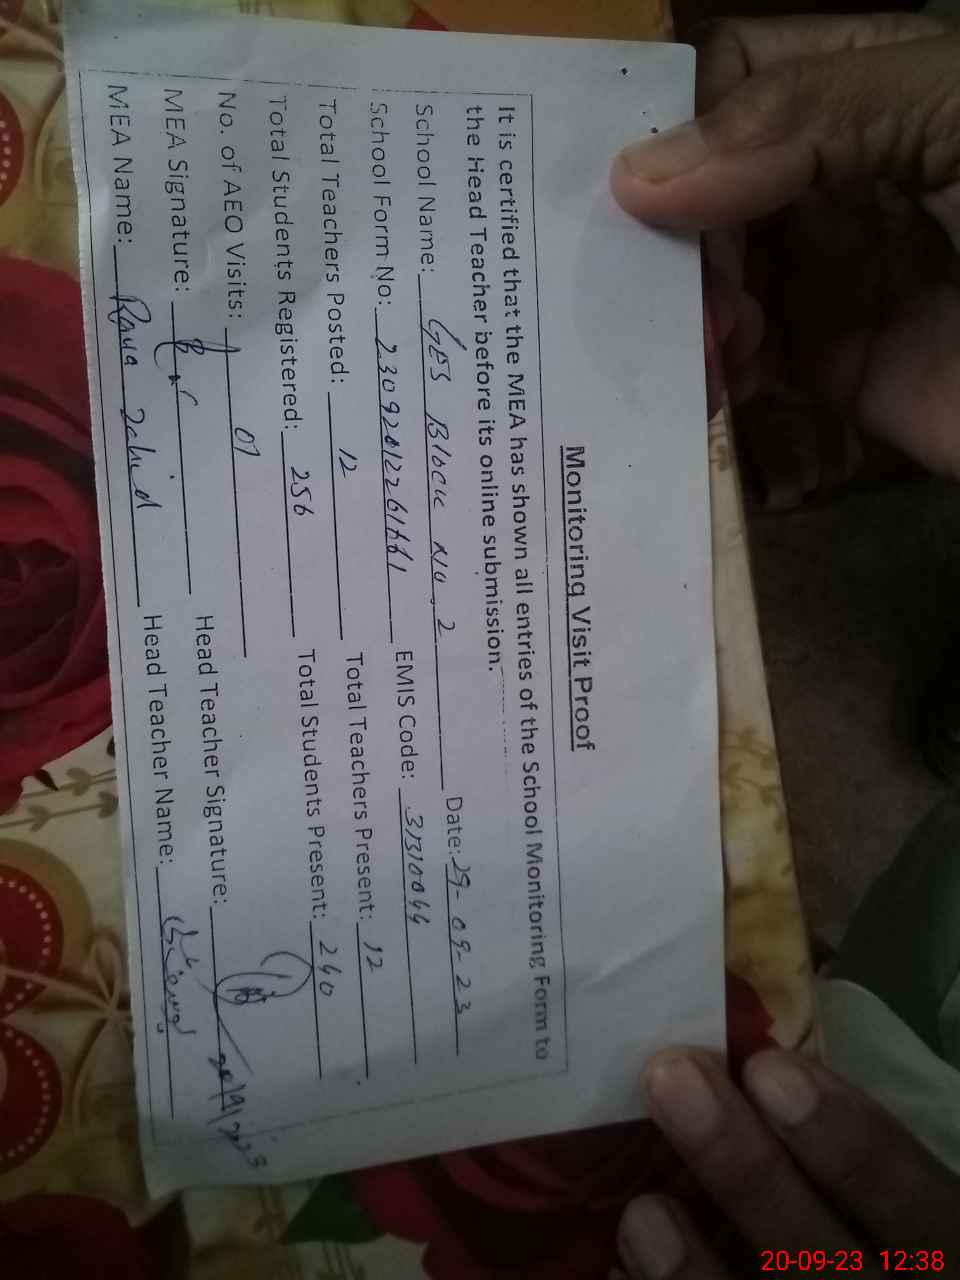 Monitoring Visit Proof
It is certified that the MEA has shown all entries of the School Monitoring Form to
the Head Teacher before its online submission.
School Name: GES Block No. 2 Date: 29-09-23
School Form No: EMIS Code:
Total Teachers Posted: 12 Total Teachers Present: 12
Total Students Registered: 256 Total Students Present: 240
No. of AEO Visits: 01
MEA Signature: Head Teacher Signature:
MEA Name: Rana Zahid Head Teacher Name:
20-09-23 12:38